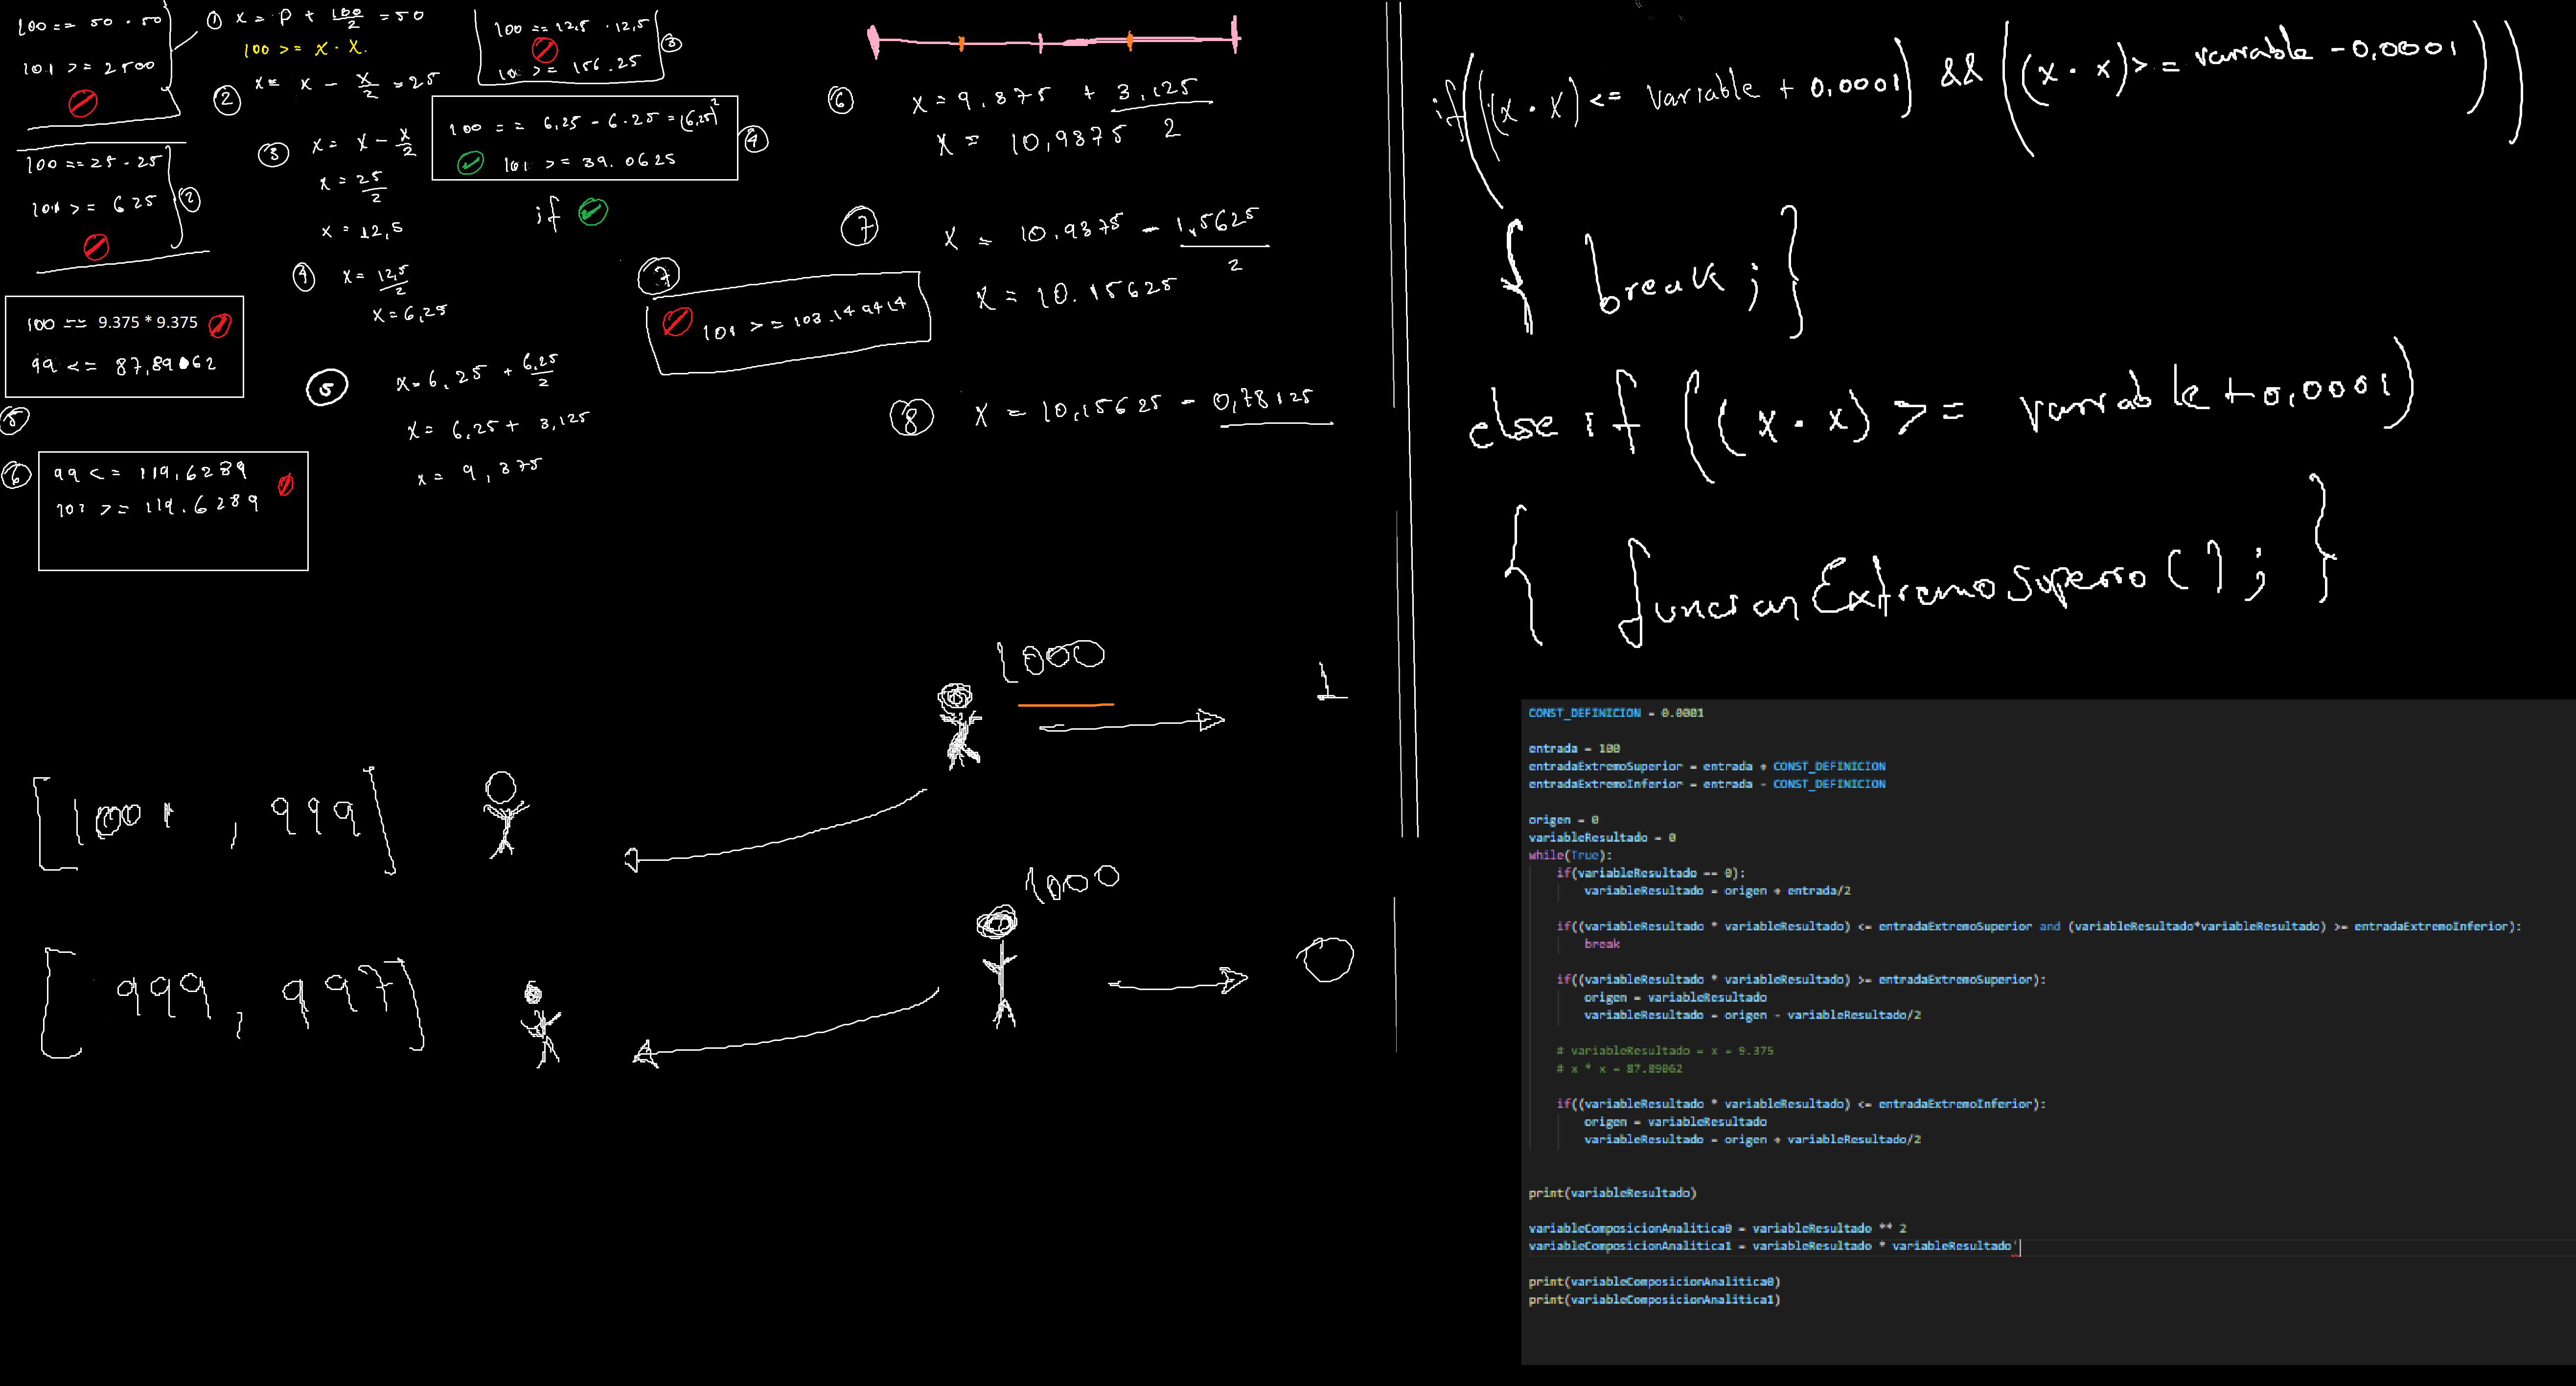 100 == 50 · 50
101 >= 2500
① x = p + 100/2 = 50
100 >= x · x.
② x = x - x/2 = 25
100 == 12,5 · 12,5
③
101 >= 156.25
100 == 25 · 25
②
101 >= 625
③ x = x - x/2
x = 25/2
x = 12,5
100 == 6,25 - 6.25 = (6,25)²
④
101 >= 39.0625
if
④ x = 12,5/2
x = 6,25
100 == 9.375 * 9.375
99 <= 87,89062
⑤
⑤ x = 6,25 + 6,25/2
x = 6,25 + 3,125
x = 9,375
⑥
99 <= 119,6289
101 >= 119.6289
⑥ x = 9,875 + 3,125/2
x = 10,9375
⑦ x = 10,9375 - 1,5625/2
x = 10.15625
⑦
101 >= 103.149414
⑧ x = 10,15625 - 0,78125
1000
1
[1001, 999]
1000
0
[999, 997]
if(((x · x) <= variable + 0,0001) && ((x · x) >= variable - 0,0001))
{ break; }
else if ((x · x) >= variable + 0,0001)
{ funcionExtremoSuperro(); }
CONST_DEFINICION = 0.0001
entrada = 100
entradaExtremoSuperior = entrada + CONST_DEFINICION
entradaExtremoInferior = entrada - CONST_DEFINICION
origen = 0
variableResultado = 0
while(True):
if(variableResultado == 0):
variableResultado = origen + entrada/2
if((variableResultado * variableResultado) <= entradaExtremoSuperior and (variableResultado*variableResultado) >= entradaExtremoInferior):
break
if((variableResultado * variableResultado) >= entradaExtremoSuperior):
origen = variableResultado
variableResultado = origen - variableResultado/2
# variableResultado = x = 9.375
# x * x = 87.89062
if((variableResultado * variableResultado) <= entradaExtremoInferior):
origen = variableResultado
variableResultado = origen + variableResultado/2
print(variableResultado)
variableComposicionAnalitica0 = variableResultado ** 2
variableComposicionAnalitica1 = variableResultado * variableResultado
print(variableComposicionAnalitica0)
print(variableComposicionAnalitica1)